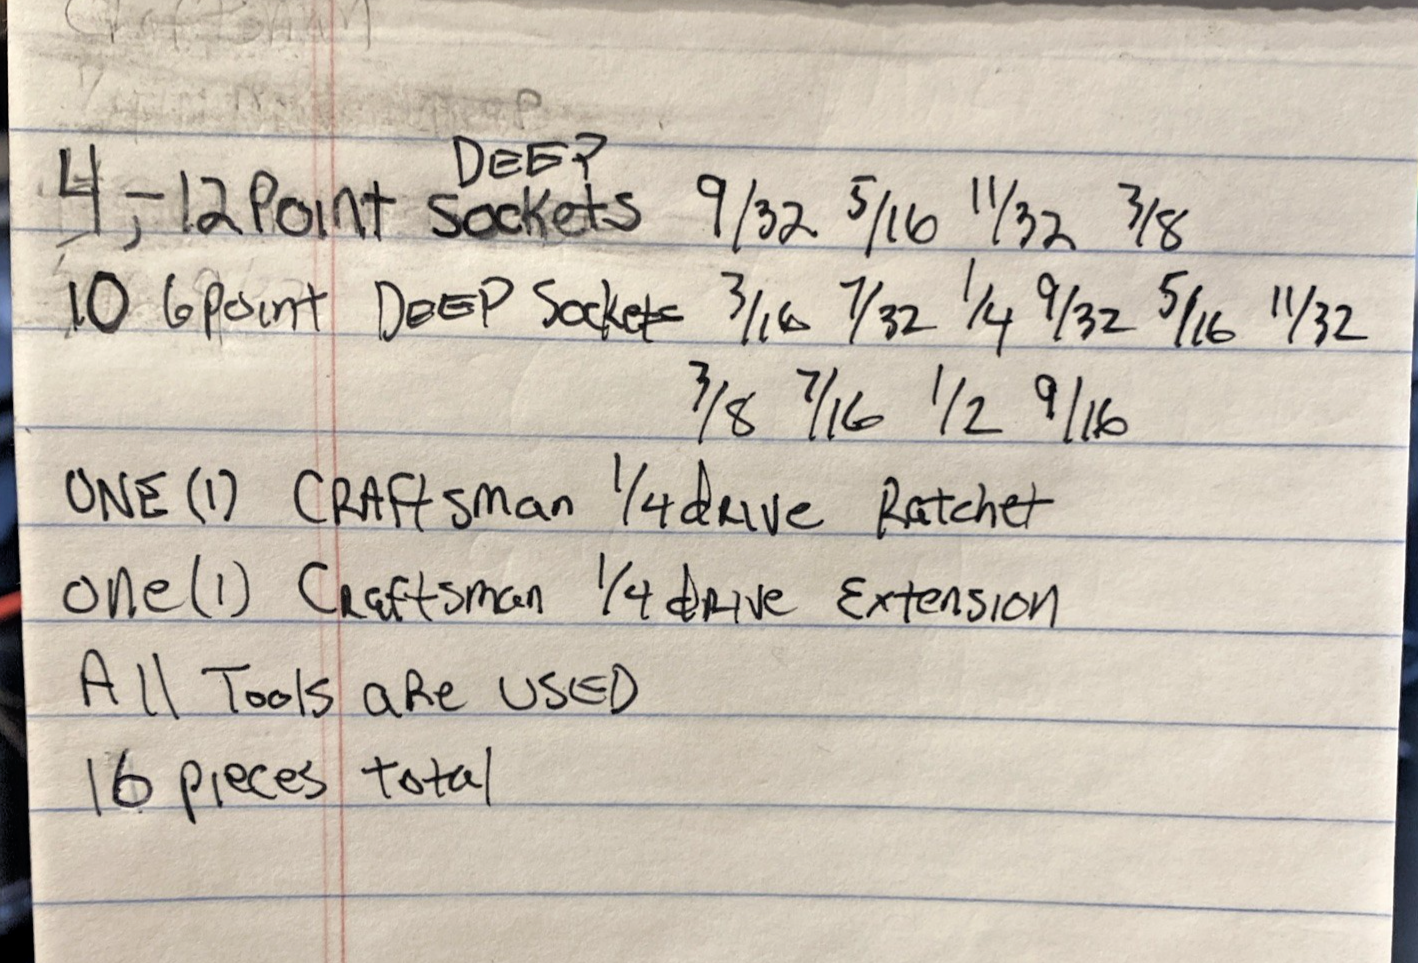 Craftsman
DEEP
4,-12 Point Sockets 9/32 5/16 11/32 3/8
10 6 point DEEP Sockets 3/16 7/32 1/4 9/32 5/16 11/32
3/8 7/16 1/2 9/16
ONE (1) CRAftsman 1/4 dRIve Ratchet
one (1) Craftsman 1/4 dRIve Extension
All Tools aRe USED
16 pieces total